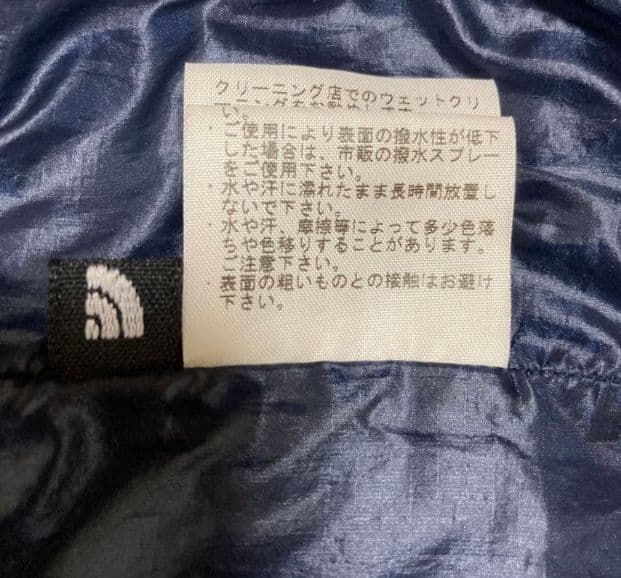 クリーニング店でのウェットクリ
ーニングをお勧めします
い。
・ご使用により表面の撥水性が低下
した場合は、市販の撥水スプレー
をご使用下さい。
・水や汗に濡れたまま長時間放置し
ないで下さい。
・水や汗、摩擦等によって多少色落
ちや色移りすることがあります。
ご注意下さい。
・表面の粗いものとの接触はお避け
下さい。